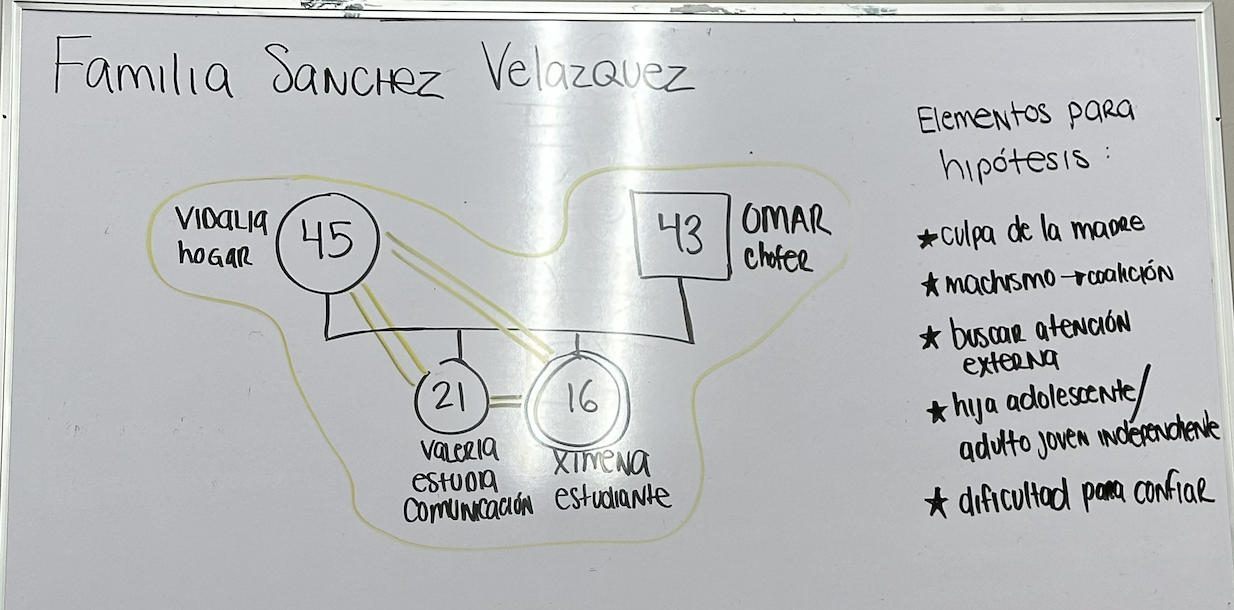 Familia Sanchez Velazquez
Elementos para
hipótesis:
★ culpa de la madre
★ machismo → coalición
★ buscar atención
externa
★ hija adolescente/
adulto joven independiente
★ dificultad para confiar
Vidalia
hogar
45
43
Omar
chofer
21
16
Valeria
estudia
comunicación
Ximena
estudiante